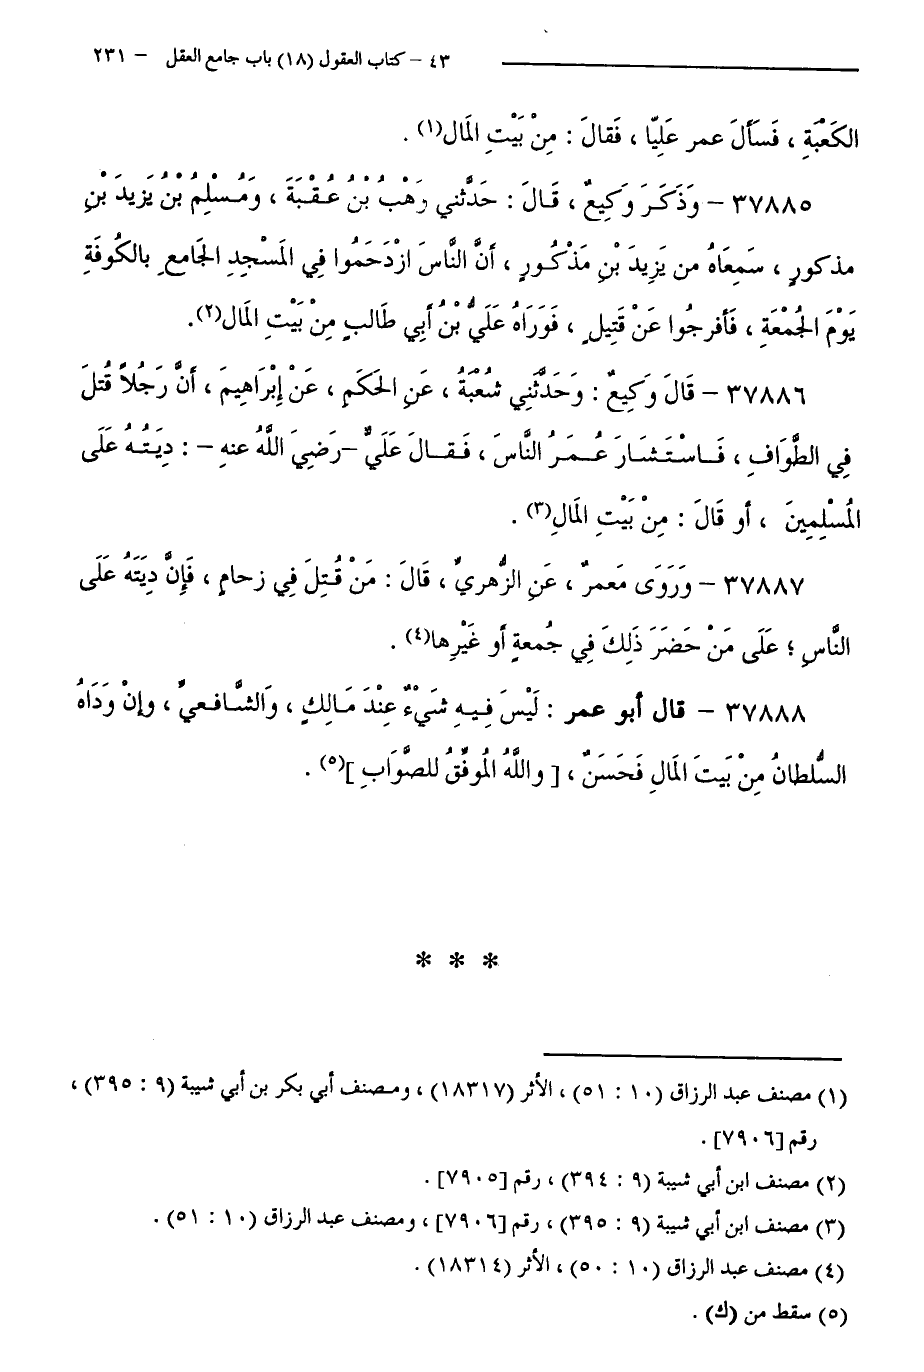 ٤٣ - كتاب العقول (١٨) باب جامع العقل - ٢٣١
الكَعْبَةِ ، فَسَأَلَ عمر عَلِيّا ، فَقالَ : مِنْ بَيْتِ المَال(١) .
٣٧٨٨٥ - وَذَكَرَ وَكِيعٌ ، قَالَ : حَدَّثني وَهْبُ بْنُ عُقْبَةَ ، وَمُسْلِمُ بْنُ يَزِيدَ بْنِ
مذكورٍ ، سَمِعَاهُ من يَزِيدَ بْنِ مَذْكُورٍ ، أَنَّ النَّاسَ ازْدَحَمُوا فِي المَسْجِدِ الجَامعِ بالكُوفَةِ
يَوْمَ الجُمْعَةِ ، فَأَفرجُوا عَنْ قَتِيلٍ ، فَوَرَاهُ عَلَيُّ بْنُ أَبِي طَالبٍ مِنْ بَيْتِ المَال(٢).
٣٧٨٨٦ - قَالَ وَكِيعٌ : وَحَدَّثَنِي شُعْبَةُ ، عَنِ الحَكَمِ ، عَنْ إِبْرَاهِيمَ ، أَنَّ رَجُلاً قُتلَ
فِي الطَّوَافِ ، فَاسْتَشَارَ عُمَرُ النَّاسَ ، فَقالَ عَلَيٌّ -رَضِيَ اللَّهُ عنهِ - : دِيَتُهُ عَلَى
المُسْلِمِينَ ، أو قَالَ : مِنْ بَيْتِ المَالِ(٣) .
٣٧٨٨٧ - وَرَوَى مَعمرٌ ، عَنِ الزُّهريِّ ، قَالَ : مَنْ قُتِلَ فِي زحامٍ ، فَإِنَّ دِيَتَهُ عَلَى
النَّاسِ ؛ عَلَى مَنْ حَضَرَ ذَلِكَ فِي جُمعةٍ أو غَيْرِها(٤) .
٣٧٨٨٨ - قال أبو عمر : لَيْسَ فِيهِ شَيْءٌ عِنْدَ مَالِكٍ ، وَالشَّافعيِّ ، وإنْ وَدَاهُ
السُّلطانُ مِنْ بَيتَ المَالِ فَحَسَنٌ ، [ واللَّهُ المُوفِّقُ للصَّوَابِ ](٥) .
* * *
(١) مصنف عبد الرزاق (١٠ : ٥١) ، الأثر (١٨٣١٧) ، ومصنف أبي بكر بن أبي شيبة (٩ : ٣٩٥) ،
رقم [٧٩٠٦] .
(٢) مصنف ابن أبي شيبة (٩ : ٣٩٤) ، رقم [٧٩٠٥] .
(٣) مصنف ابن أبي شيبة (٩ : ٣٩٥) ، رقم [٧٩٠٦] ، ومصنف عبد الرزاق (١٠ : ٥١) .
(٤) مصنف عبد الرزاق (١٠ : ٥٠) ، الأثر (١٨٣١٤) .
(٥) سقط من (ك) .